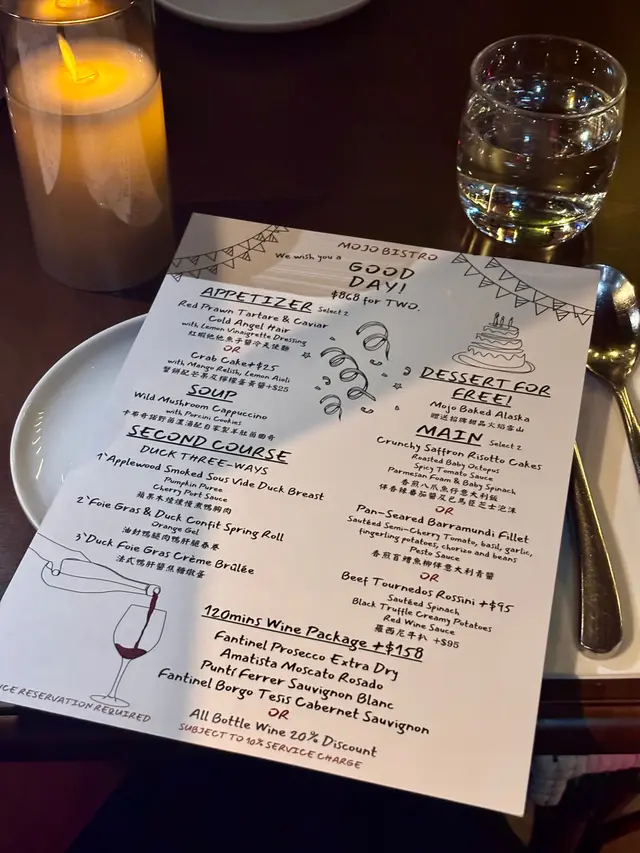 MOJO BISTRO
We wish you a
GOOD
DAY!
$868 for TWO.
APPETIZER Select 2
Red Prawn Tartare & Caviar
Cold Angel Hair
with Lemon Vinaigrette Dressing
OR
Crab Cake+$25
with Mango Relish, Lemon Aioli
SOUP
Wild Mushroom Cappuccino
with Porcini Cookies
SECOND COURSE
DUCK THREE-WAYS
1' Applewood Smoked Sous Vide Duck Breast
Pumpkin Puree
Cherry Port Sauce
蘋果木煙燻慢煮鴨胸肉
2' Foie Gras & Duck Confit Spring Roll
Orange Gel
油封鴨腿肉鴨肝腿春卷
3' Duck Foie Gras Crème Brûlée
法式鴨肝醬焦糖燉蛋
DESSERT FOR
FREE!
Mojo Baked Alaska
贈送招牌甜品火焰雪山
MAIN Select 2
Crunchy Saffron Risotto Cakes
Roasted Baby Octopus
Spicy Tomato Sauce
Parmesan Foam & Baby Spinach
香煎八爪魚仔意大利飯
伴香辣番茄醬及巴馬臣芝士泡沫
OR
Pan-Seared Barramundi Fillet
Sautéed Semi-Cherry Tomato, basil, garlic,
fingerling potatoes, chorizo and beans
Pesto Sauce
香煎盲鰽魚柳伴意大利青醬
OR
Beef Tournedos Rossini +$95
Sautéed Spinach
Black Truffle Creamy Potatoes
Red Wine Sauce
羅西尼牛扒 +$95
120mins Wine Package +$158
Fantinel Prosecco Extra Dry
Amatista Moscato Rosado
Puntí Ferrer Sauvignon Blanc
Fantinel Borgo Tesis Cabernet Sauvignon
OR
All Bottle Wine 20% Discount
SUBJECT TO 10% SERVICE CHARGE
RESERVATION REQUIRED